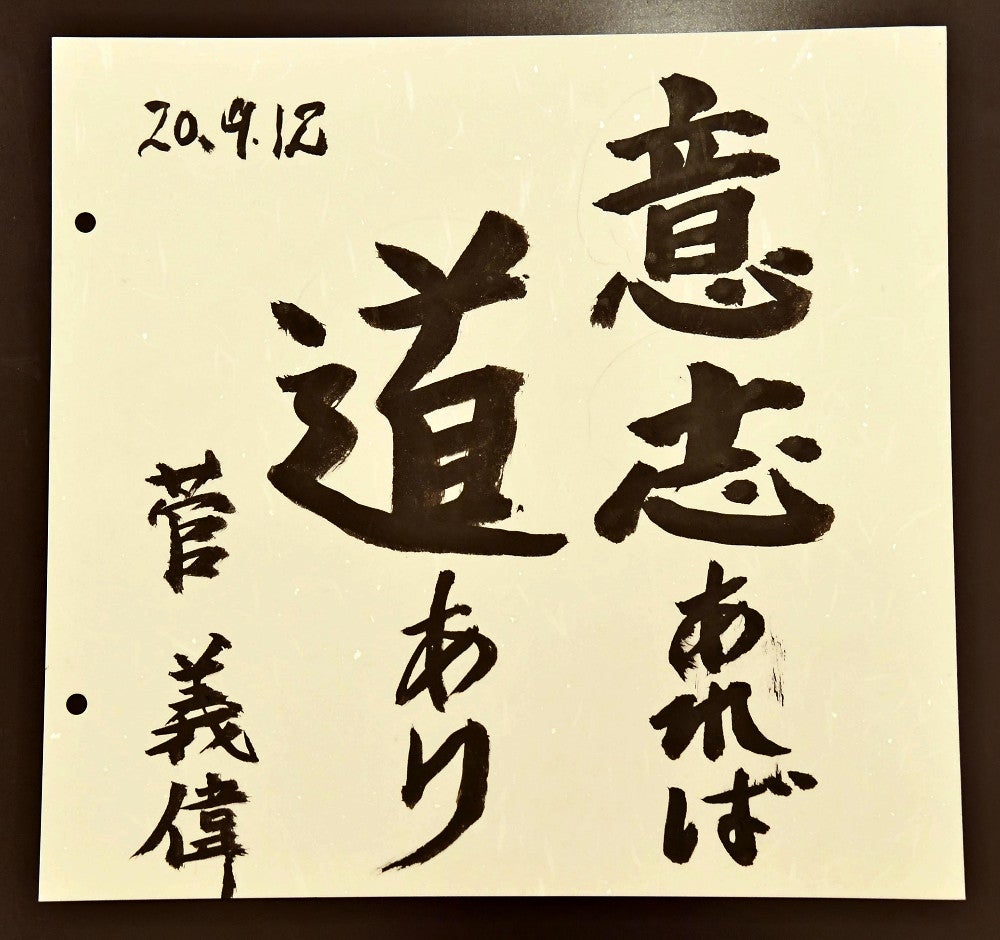 意志あれば
道あり
20.9.12
菅義偉